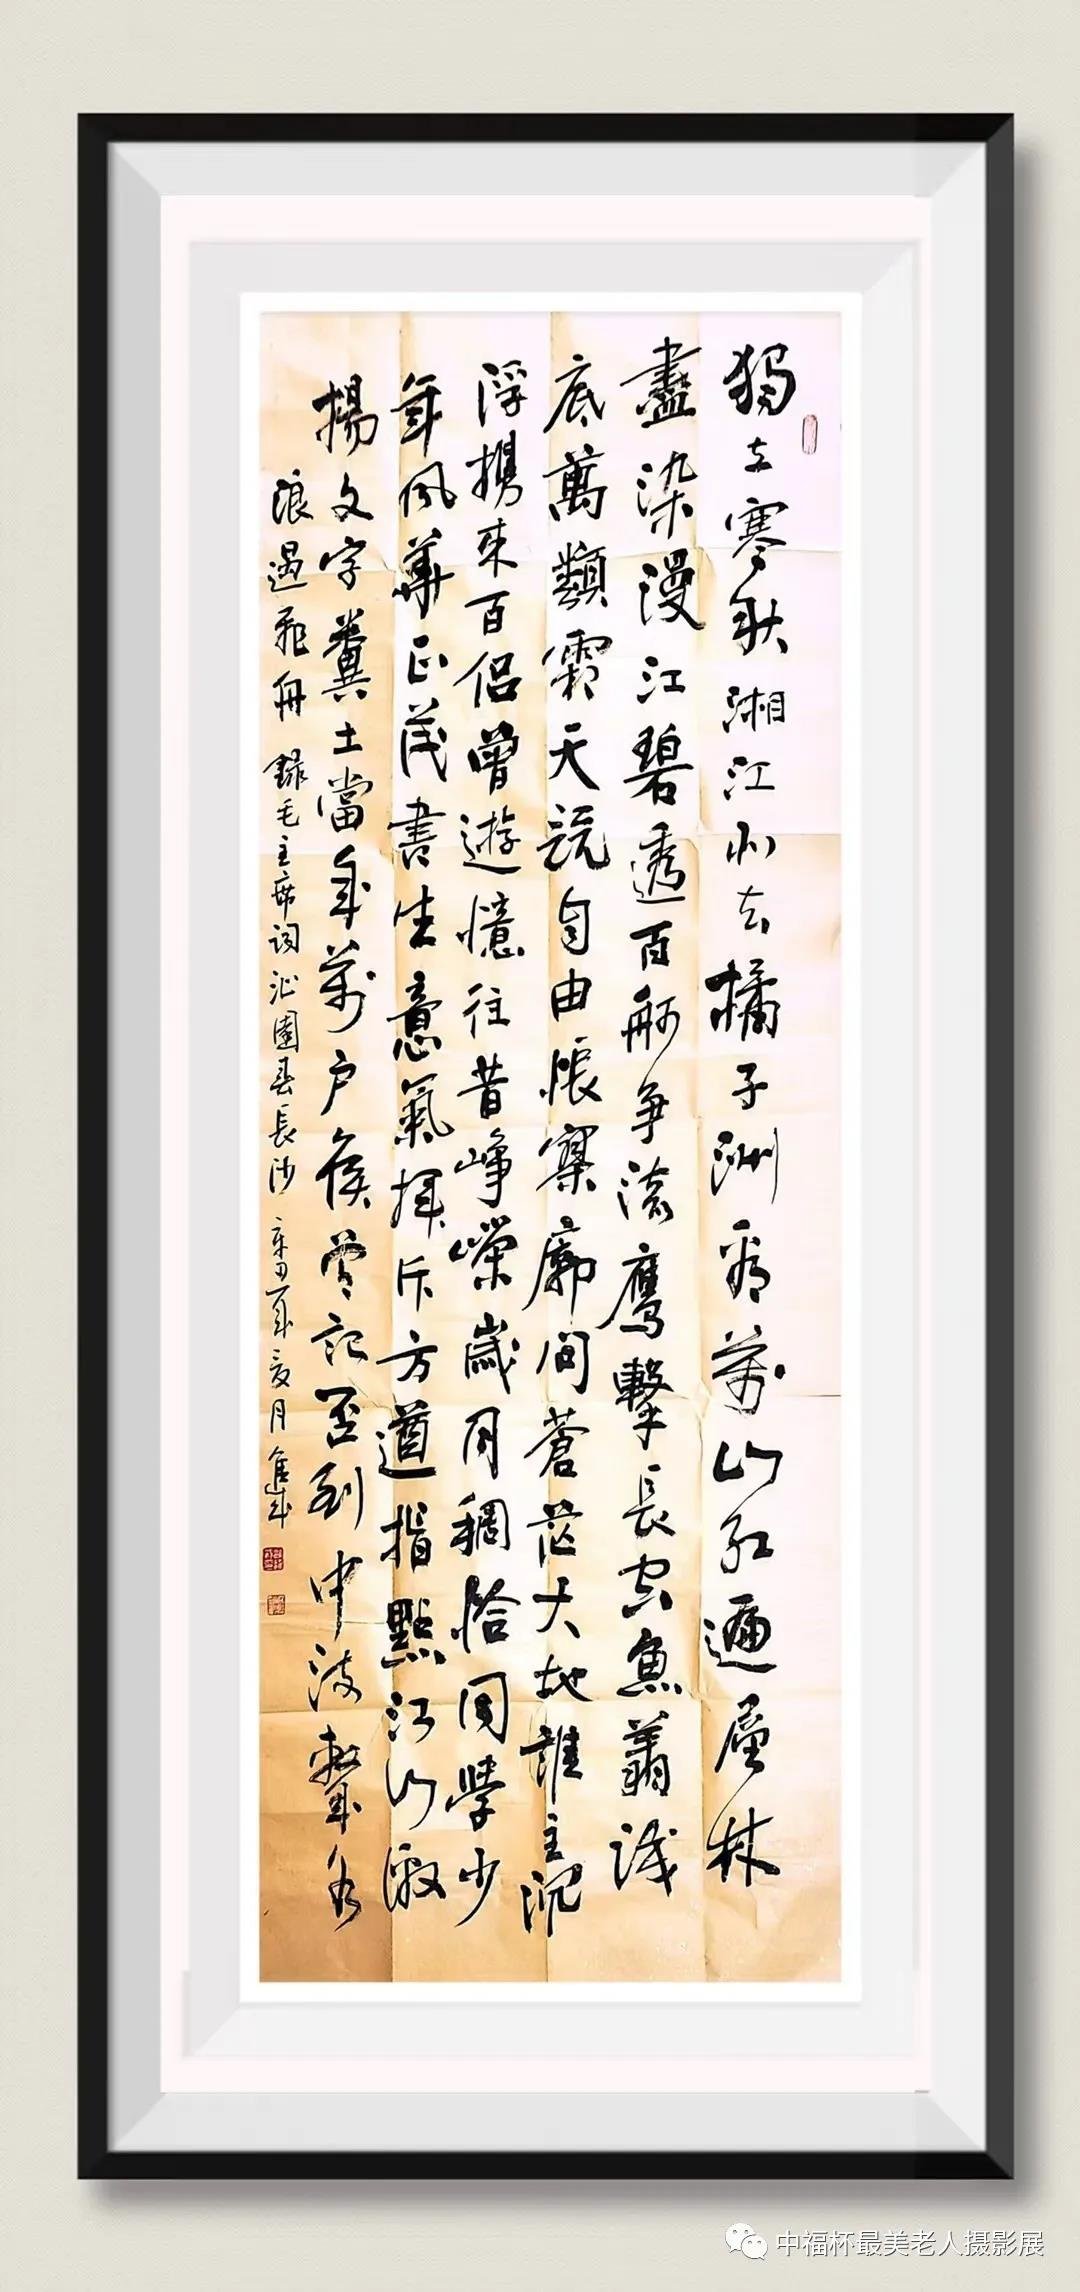 獨立寒秋湘江北去橘子洲頭看萬山紅遍層林
盡染漫江碧透百舸爭流鷹擊長空魚翔淺
底萬類霜天競自由悵寥廓問蒼茫大地誰主沉
浮攜來百侶曾遊憶往昔崢嶸歲月稠恰同學少
年風華正茂書生意氣揮斥方遒指點江山激
揚文字糞土當年萬戶侯曾記否到中流擊水
浪遏飛舟 錄毛主席詞沁園春長沙 辛丑年 月
中福杯最美老人摄影展